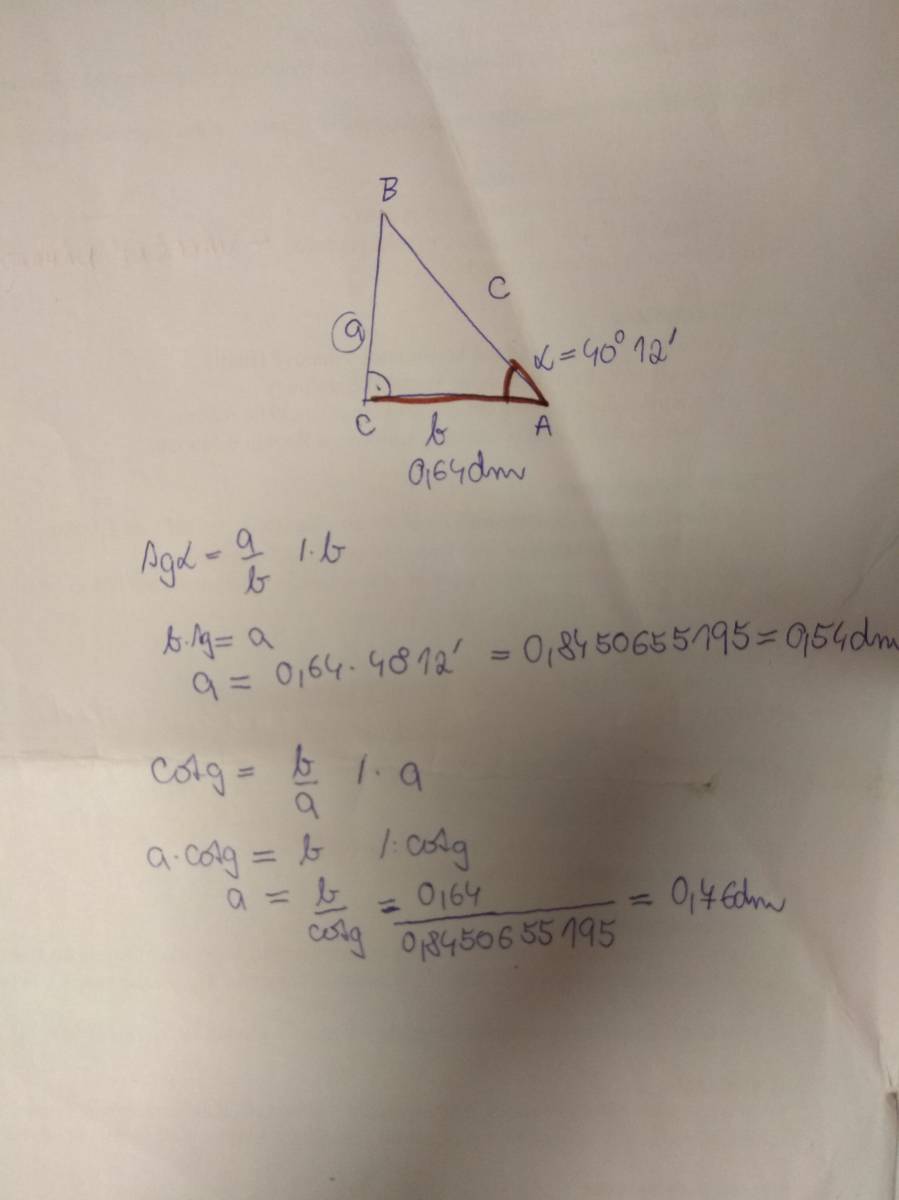 B
a
C
α = 40° 12'
C
b
A
0,64dm
tgα = a/b /·b
b·tg = a
a = 0,64 · 40° 12' = 0,8450655195 = 0,54dm
cotg = b/a /· a
a·cotg = b /:cotg
a = b/cotg = 0,64/0,8450655195 = 0,76dm